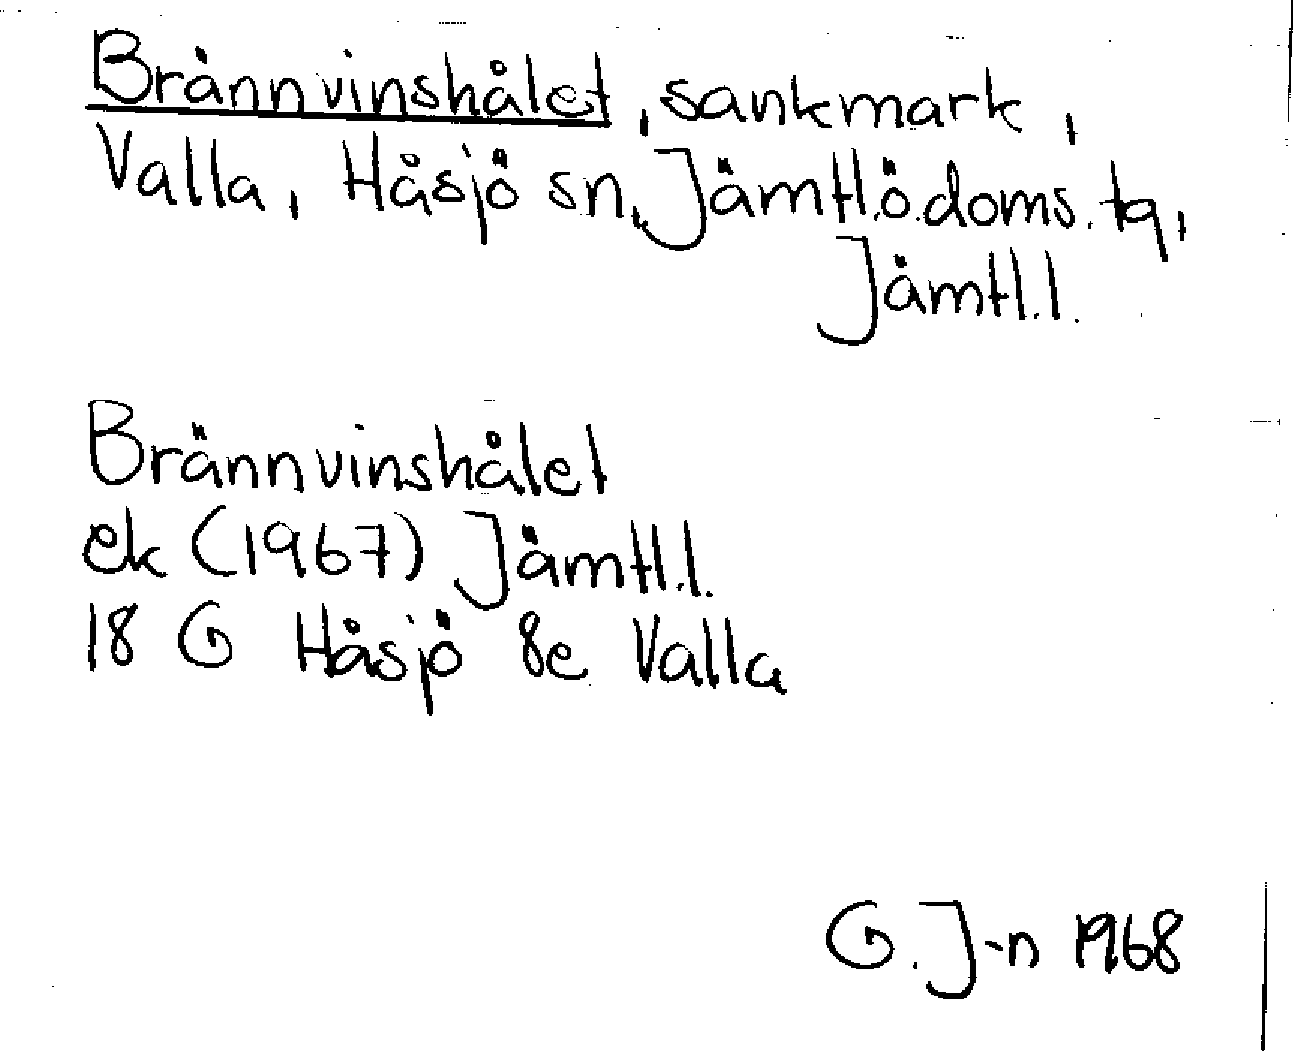 Brännvinshålet, sankmark,
Valla, Håsjö sn, Jämtl.ö.doms.tg,
Jämtl.l.
Brännvinshålet
ek (1967) Jämtl.l.
18 G Håsjö 8e Valla
G. J-n 1968